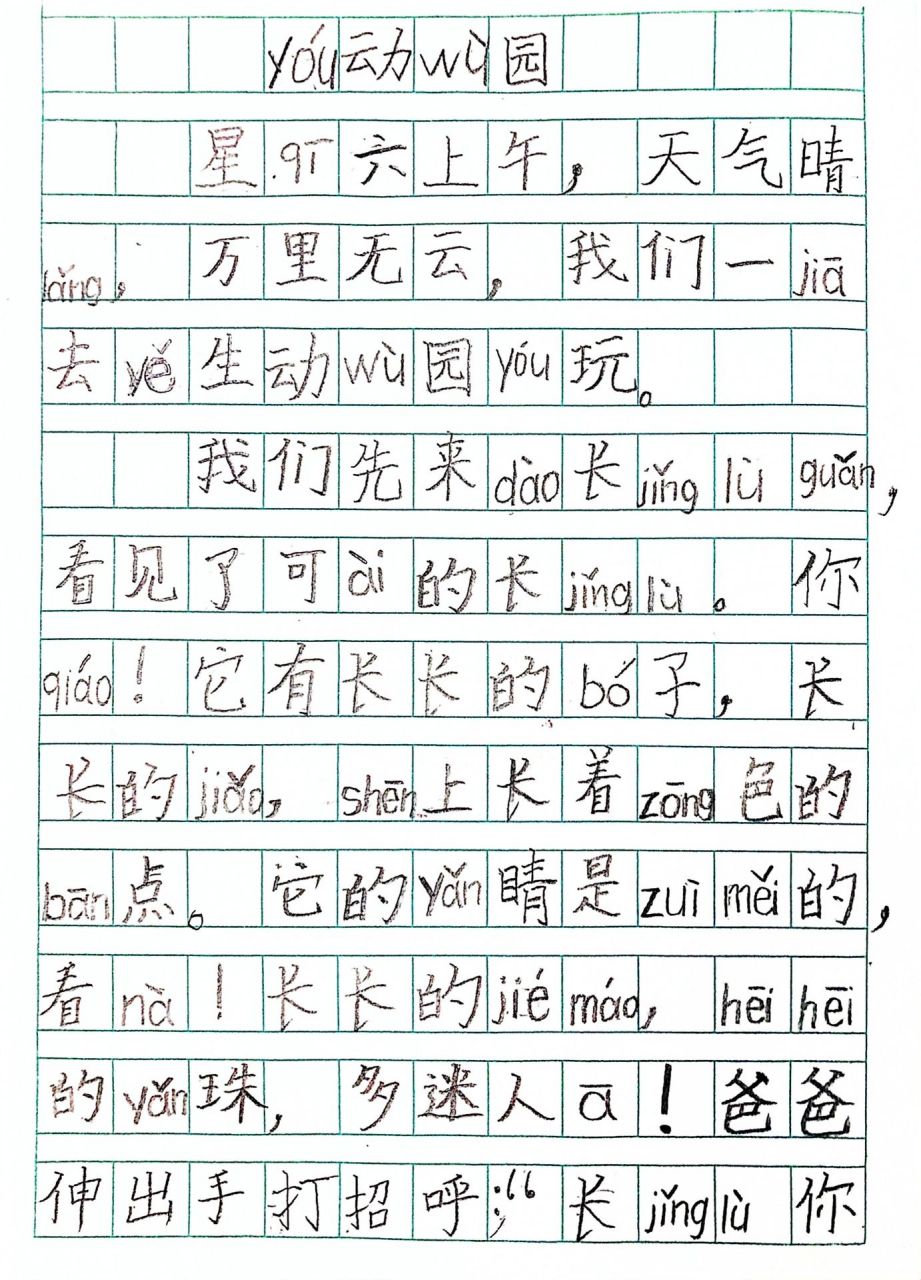 yóu动wù园
星qī六上午，天气晴
lǎng，万里无云，我们一jiā
去yě生动wù园yóu玩。
我们先来dào长jǐng lù guǎn，
看见了可ài的长jǐng lù。你
qiáo！它有长长的bó子，长
长的jiǎo，shēn上长着zōng色的
bān点。它的yǎn睛是zuì měi的，
看nà！长长的jié máo，hēi hēi
的yǎn珠，多迷人ā！爸爸
伸出手打招呼：“长jǐng lù你